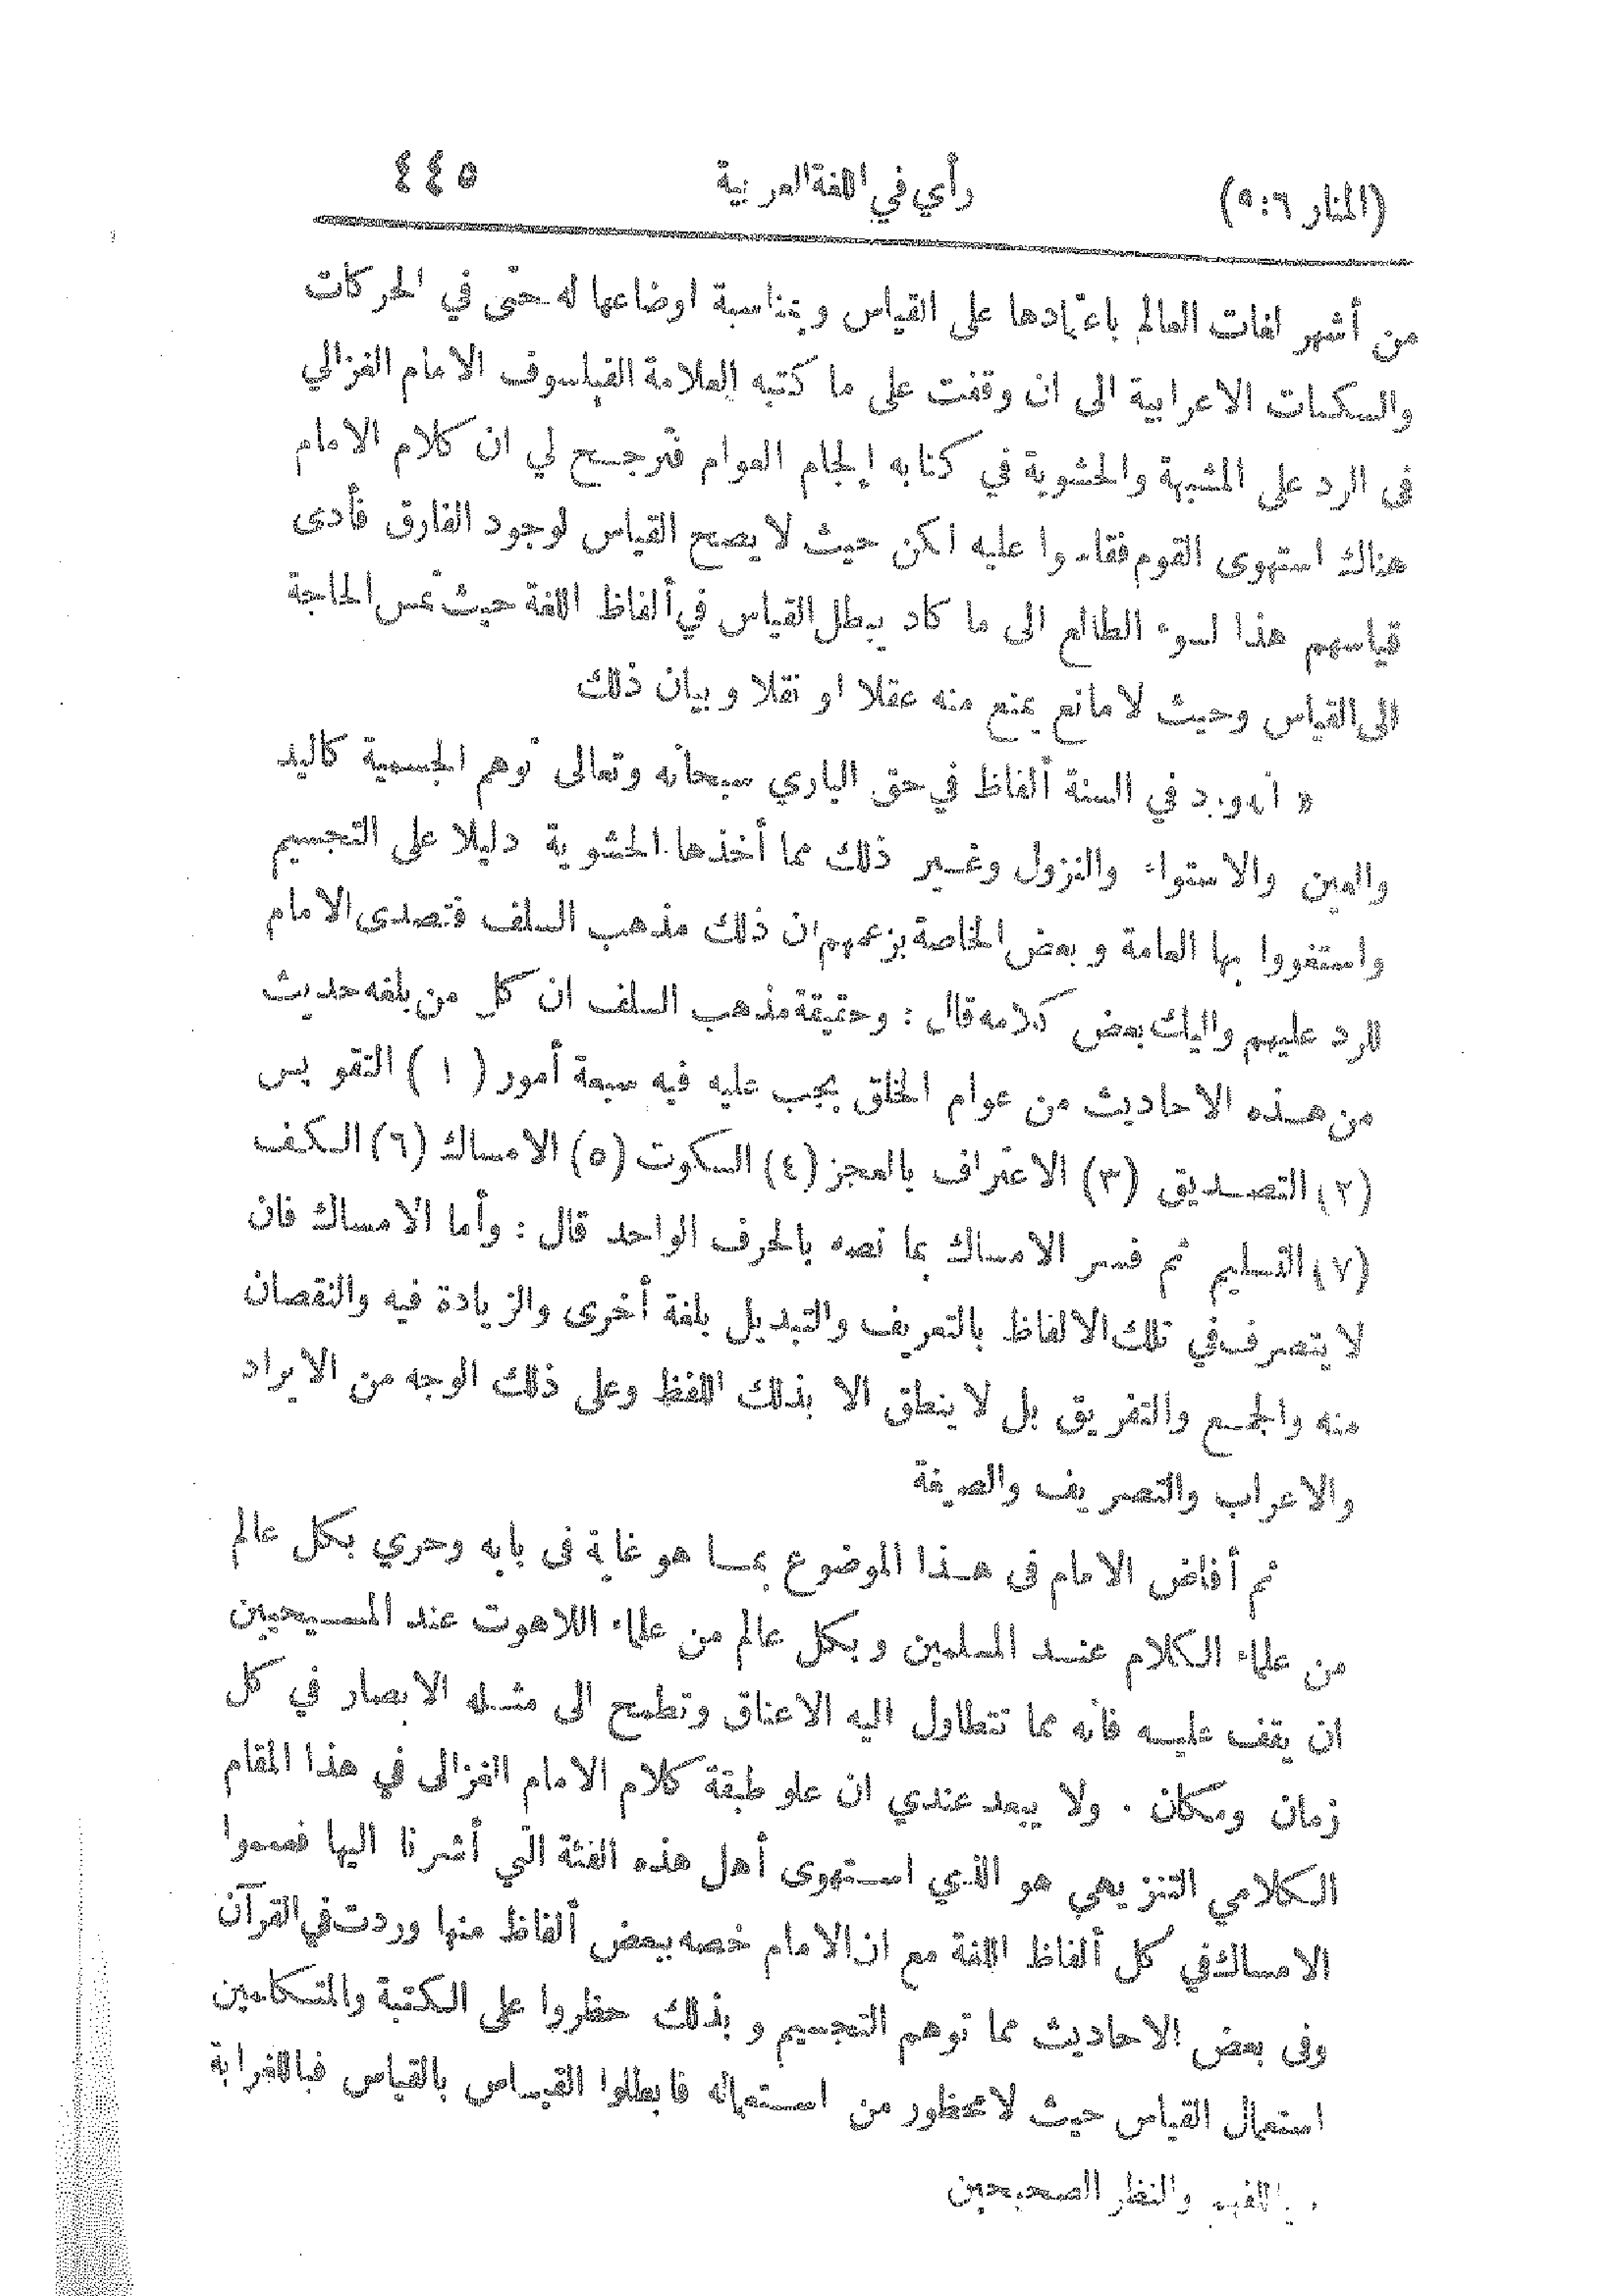 (المنار ٩:٦) رأي في اللغة العربية ٤٤٥
من أشهر لغات العالم باعتمادها على القياس وبمناسبة اوضاعها له حتى في الحركات
والسكنات الاعرابية الى ان وقفت على ما كتبه العلامة الفيلسوف الامام الغزالي
فى الرد على المشبهة والحشوية في كتابه إلجام العوام فترجح لي ان كلام الامام
هناك استهوى القوم فقاسوا عليه لكن حيث لا يصح القياس لوجود الفارق فأدى
قياسهم هذا لسوء الطالع الى ما كاد يبطل القياس في ألفاظ اللغة حيث تمس الحاجة
الى القياس وحيث لا مانع يمنع منه عقلا او نقلا وبيان ذلك
« انه ورد في السنة ألفاظ في حق الباري سبحانه وتعالى توهم الجسمية كاليد
والعين والاستواء والنزول وغير ذلك مما أخذها الحشوية دليلا على التجسيم
واستغووا بها العامة وبعض الخاصة بزعمهم ان ذلك مذهب السلف فتصدى الامام
للرد عليهم واليك بعض كلامه قال : وحقيقة مذهب السلف ان كل من بلغه حديث
من هذه الاحاديث من عوام الخلق يجب عليه فيه سبعة أمور (١) التقويس
(٢) التصديق (٣) الاعتراف بالعجز (٤) السكوت (٥) الامساك (٦) الكف
(٧) التسليم ثم فسر الامساك بما نصه بالحرف الواحد قال : وأما الامساك فان
لا يتصرف في تلك الالفاظ بالتعريف والتبديل بلغة أخرى والزيادة فيه والنقصان
منه والجمع والتفريق بل لا ينطق الا بذلك اللفظ وعلى ذلك الوجه من الايراد
والاعراب والتصريف والصيغة
ثم أفاض الامام فى هذا الموضوع بما هو غاية فى بابه وحري بكل عالم
من علماء الكلام عند المسلمين وبكل عالم من علماء اللاهوت عند المسيحيين
ان يقف عليه فانه مما تتطاول اليه الاعناق وتطمح الى مثله الابصار في كل
زمان ومكان . ولا يبعد عندي ان علو طبقة كلام الامام الغزالى في هذا المقام
الكلامي التنزيهي هو الذي استهوى أهل هذه الفئة التي أشرنا اليها فعمموا
الامساك في كل ألفاظ اللغة مع ان الامام خصه ببعض ألفاظ منها وردت في القرآن
وفى بعض الاحاديث مما توهم التجسيم وبذلك حظروا على الكتبة والمتكلمين
استعمال القياس حيث لا محظور من استعماله فابطلوا القياس بالقياس فياللغرابة
والنظر الصحيحين